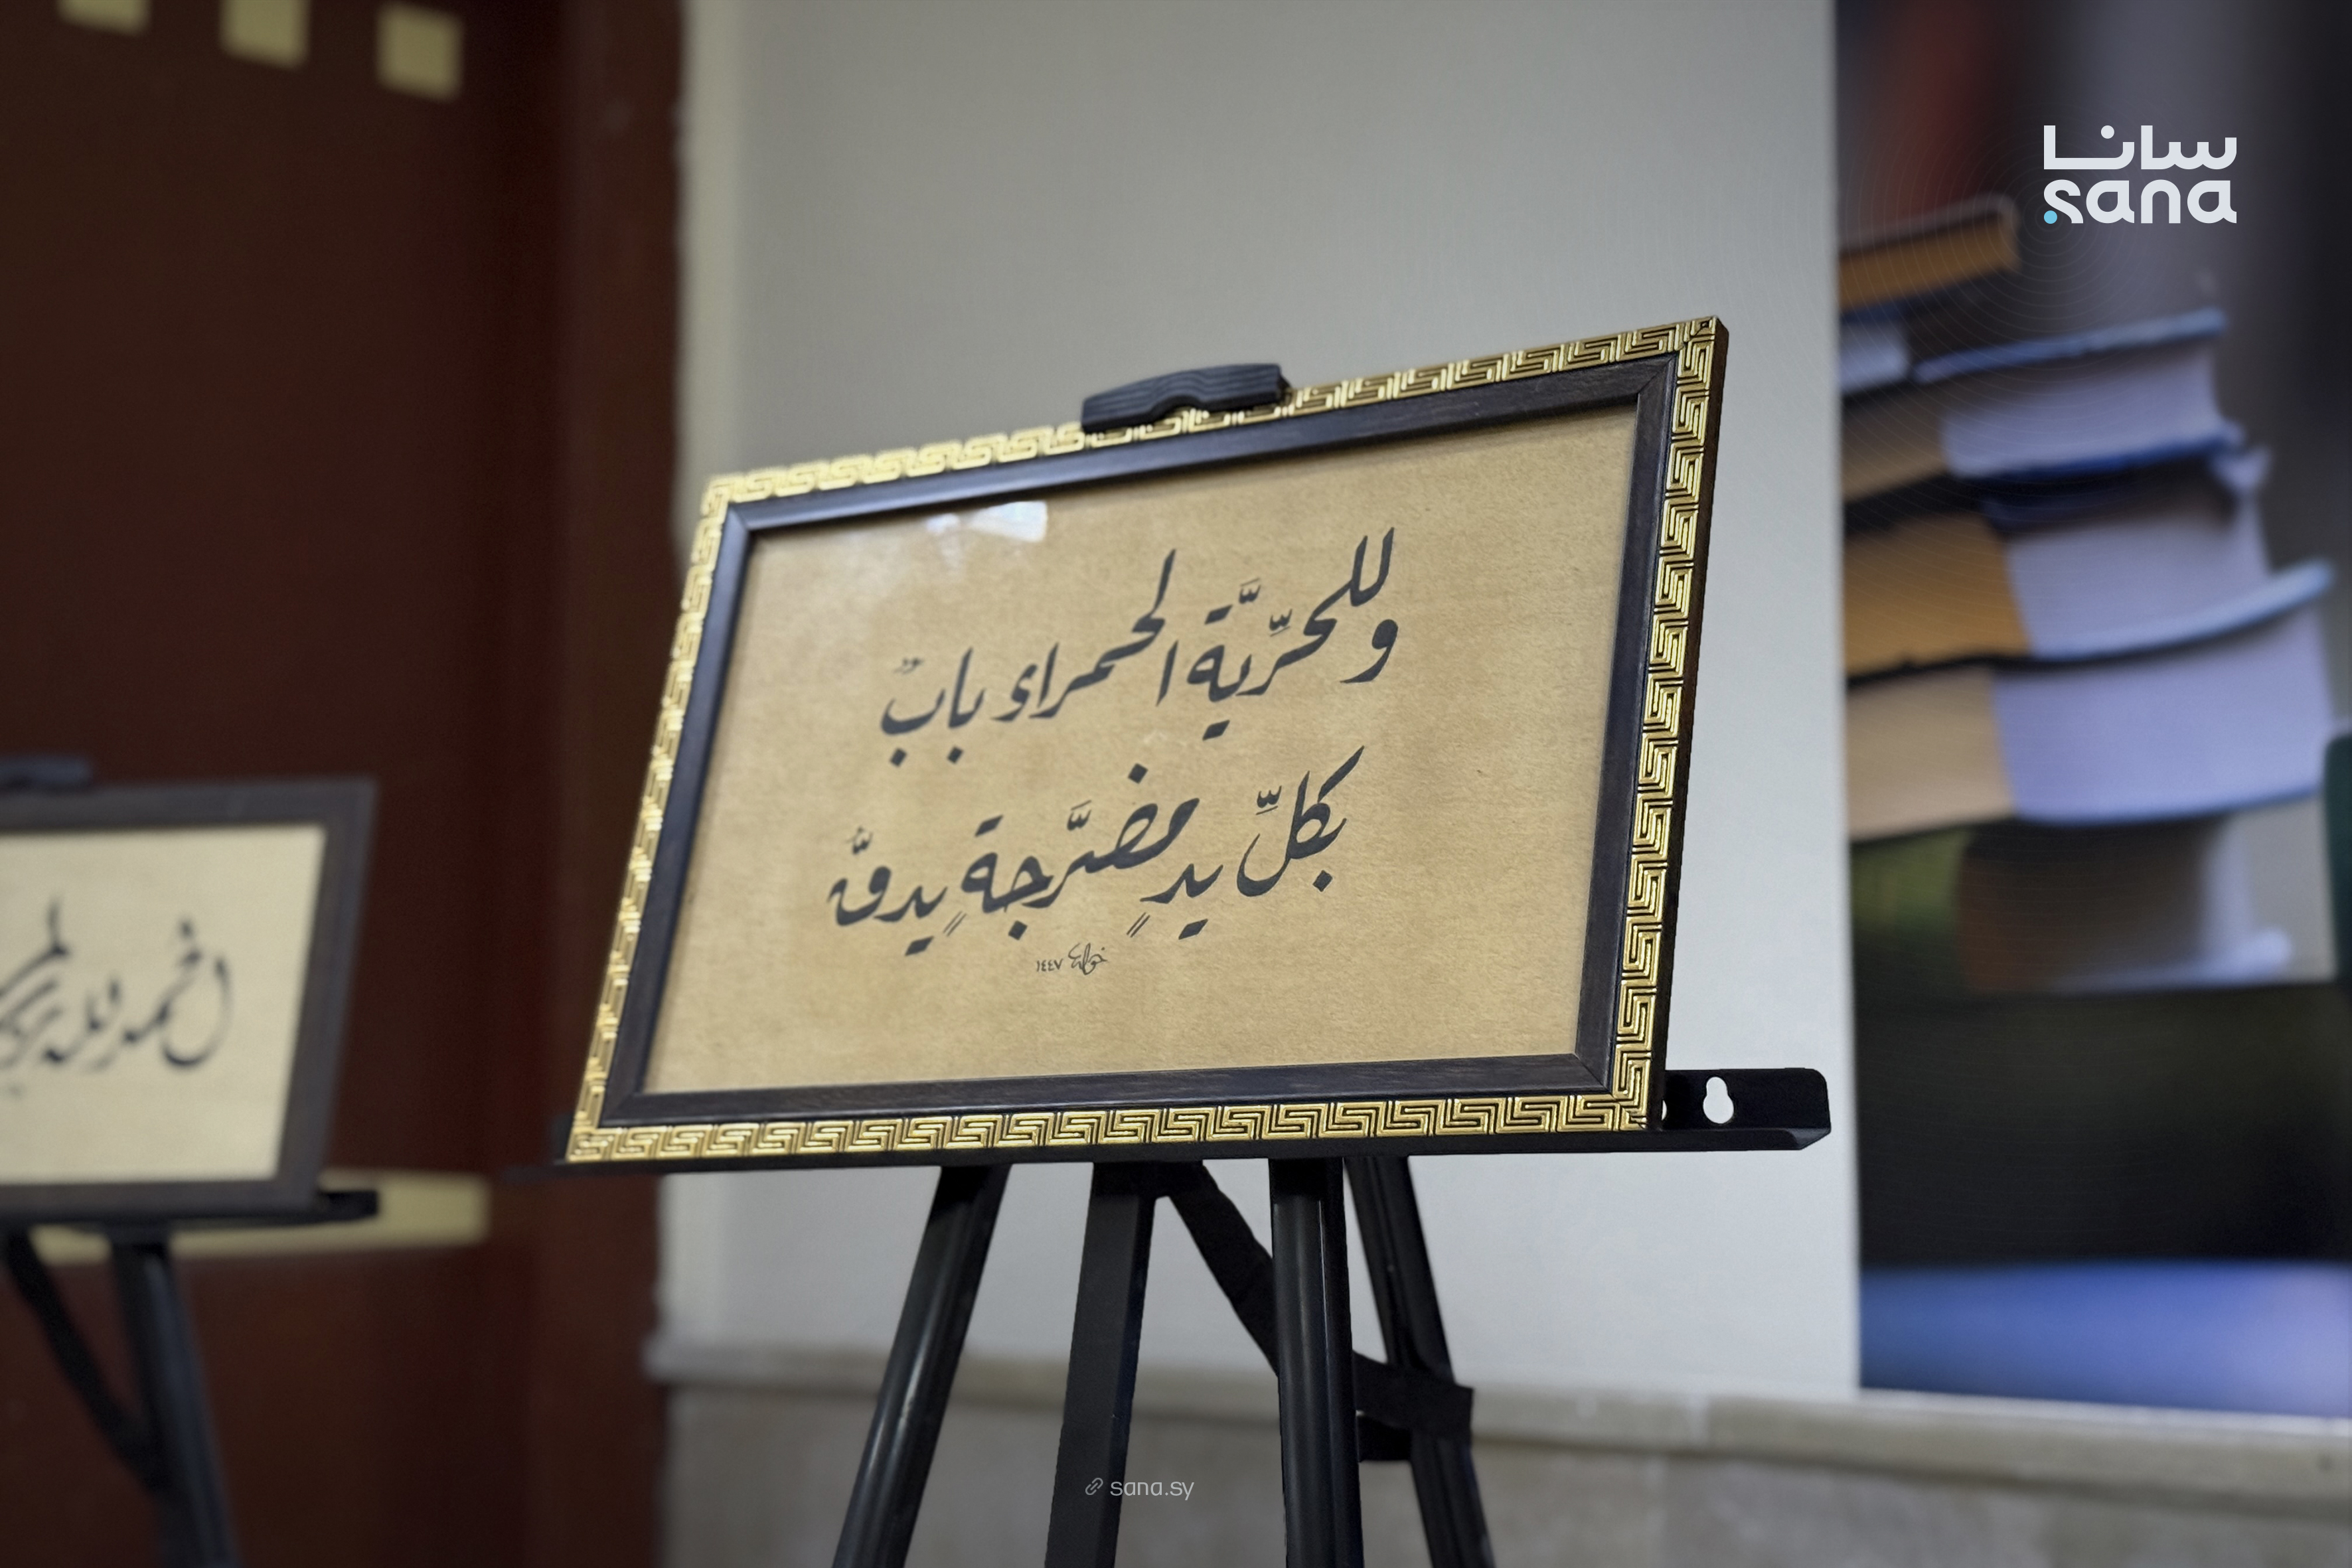 سانا
sana
وللحرِّيَّة الحمراء بابٌ
بكلِّ يدٍ مضَرَّجةٍ يدقُّ
١٤٤٧
الحمد لله
sana.sy